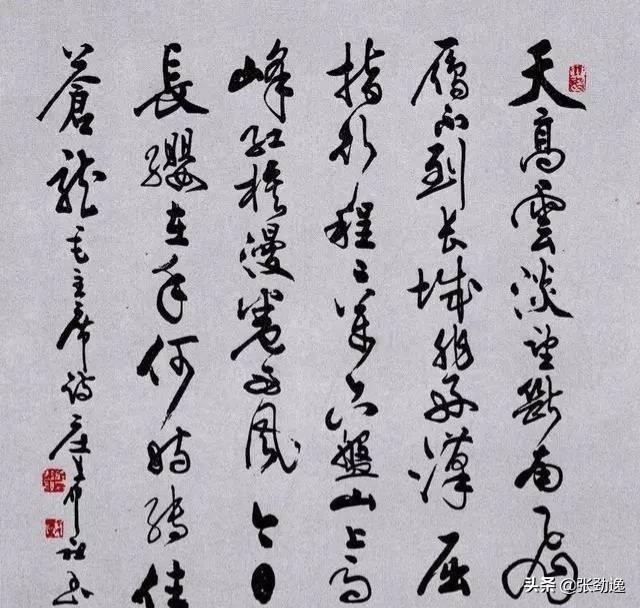 天高雲淡望斷南飛
雁不到长城非好漢屈
指行程二萬六盤山上高
峰红旗漫卷西風今日
長纓在手何時縛住
蒼龍毛主席诗庄希祖书
头条 @张劲逸